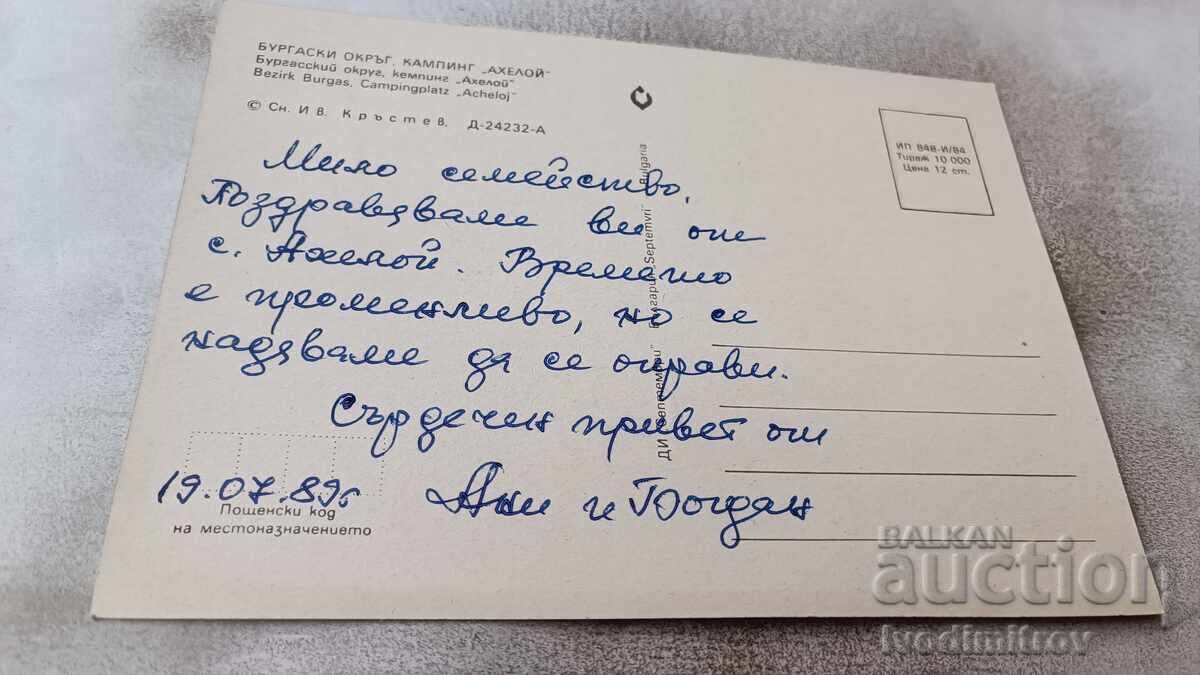 БУРГАСКИ ОКРЪГ. КАМПИНГ „АХЕЛОЙ"
Бургасский округ, кемпинг „Ахелой"
Bezirk Burgas, Campingplatz „Acheloj"
© Сн. Ив. Кръстев, Д-24232-А
ИП 848-И/84
Тираж 10 000
Цена 12 ст.
Мило семейство,
Поздравяваме ви от
с. Ахелой. Времето
е променливо, но се
надяваме да се оправи.
Сърдечен привет от
19.07.89г Ани и Богдан
Пощенски код
на местоназначението
Septemvri" Bulgaria
BALKAN
auction
Ivodimitrov